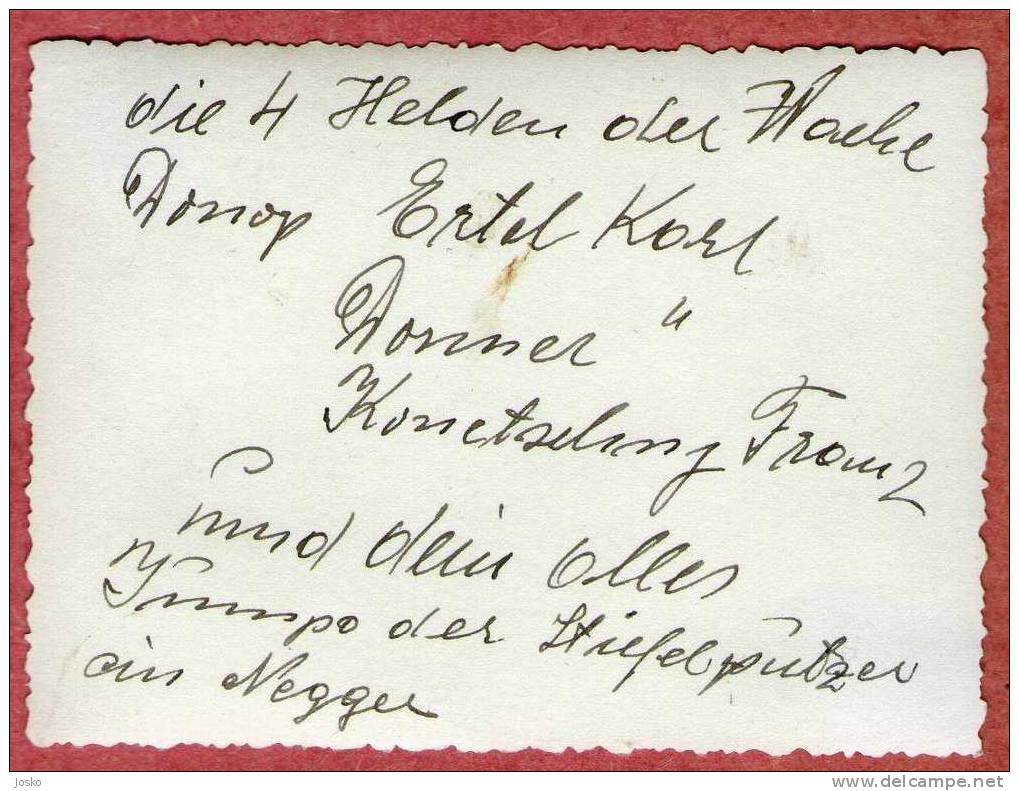 die 4 Helden der Wache
Donop Ertel Karl
Donner "
Konetschny Franz
und dein olles
der Stiefelputzer
ein Negger
Josko
www.delcampe.net